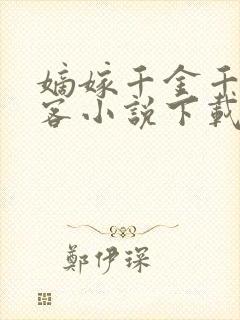 嫡嫁千金千
客小說下載
鄭伊琛